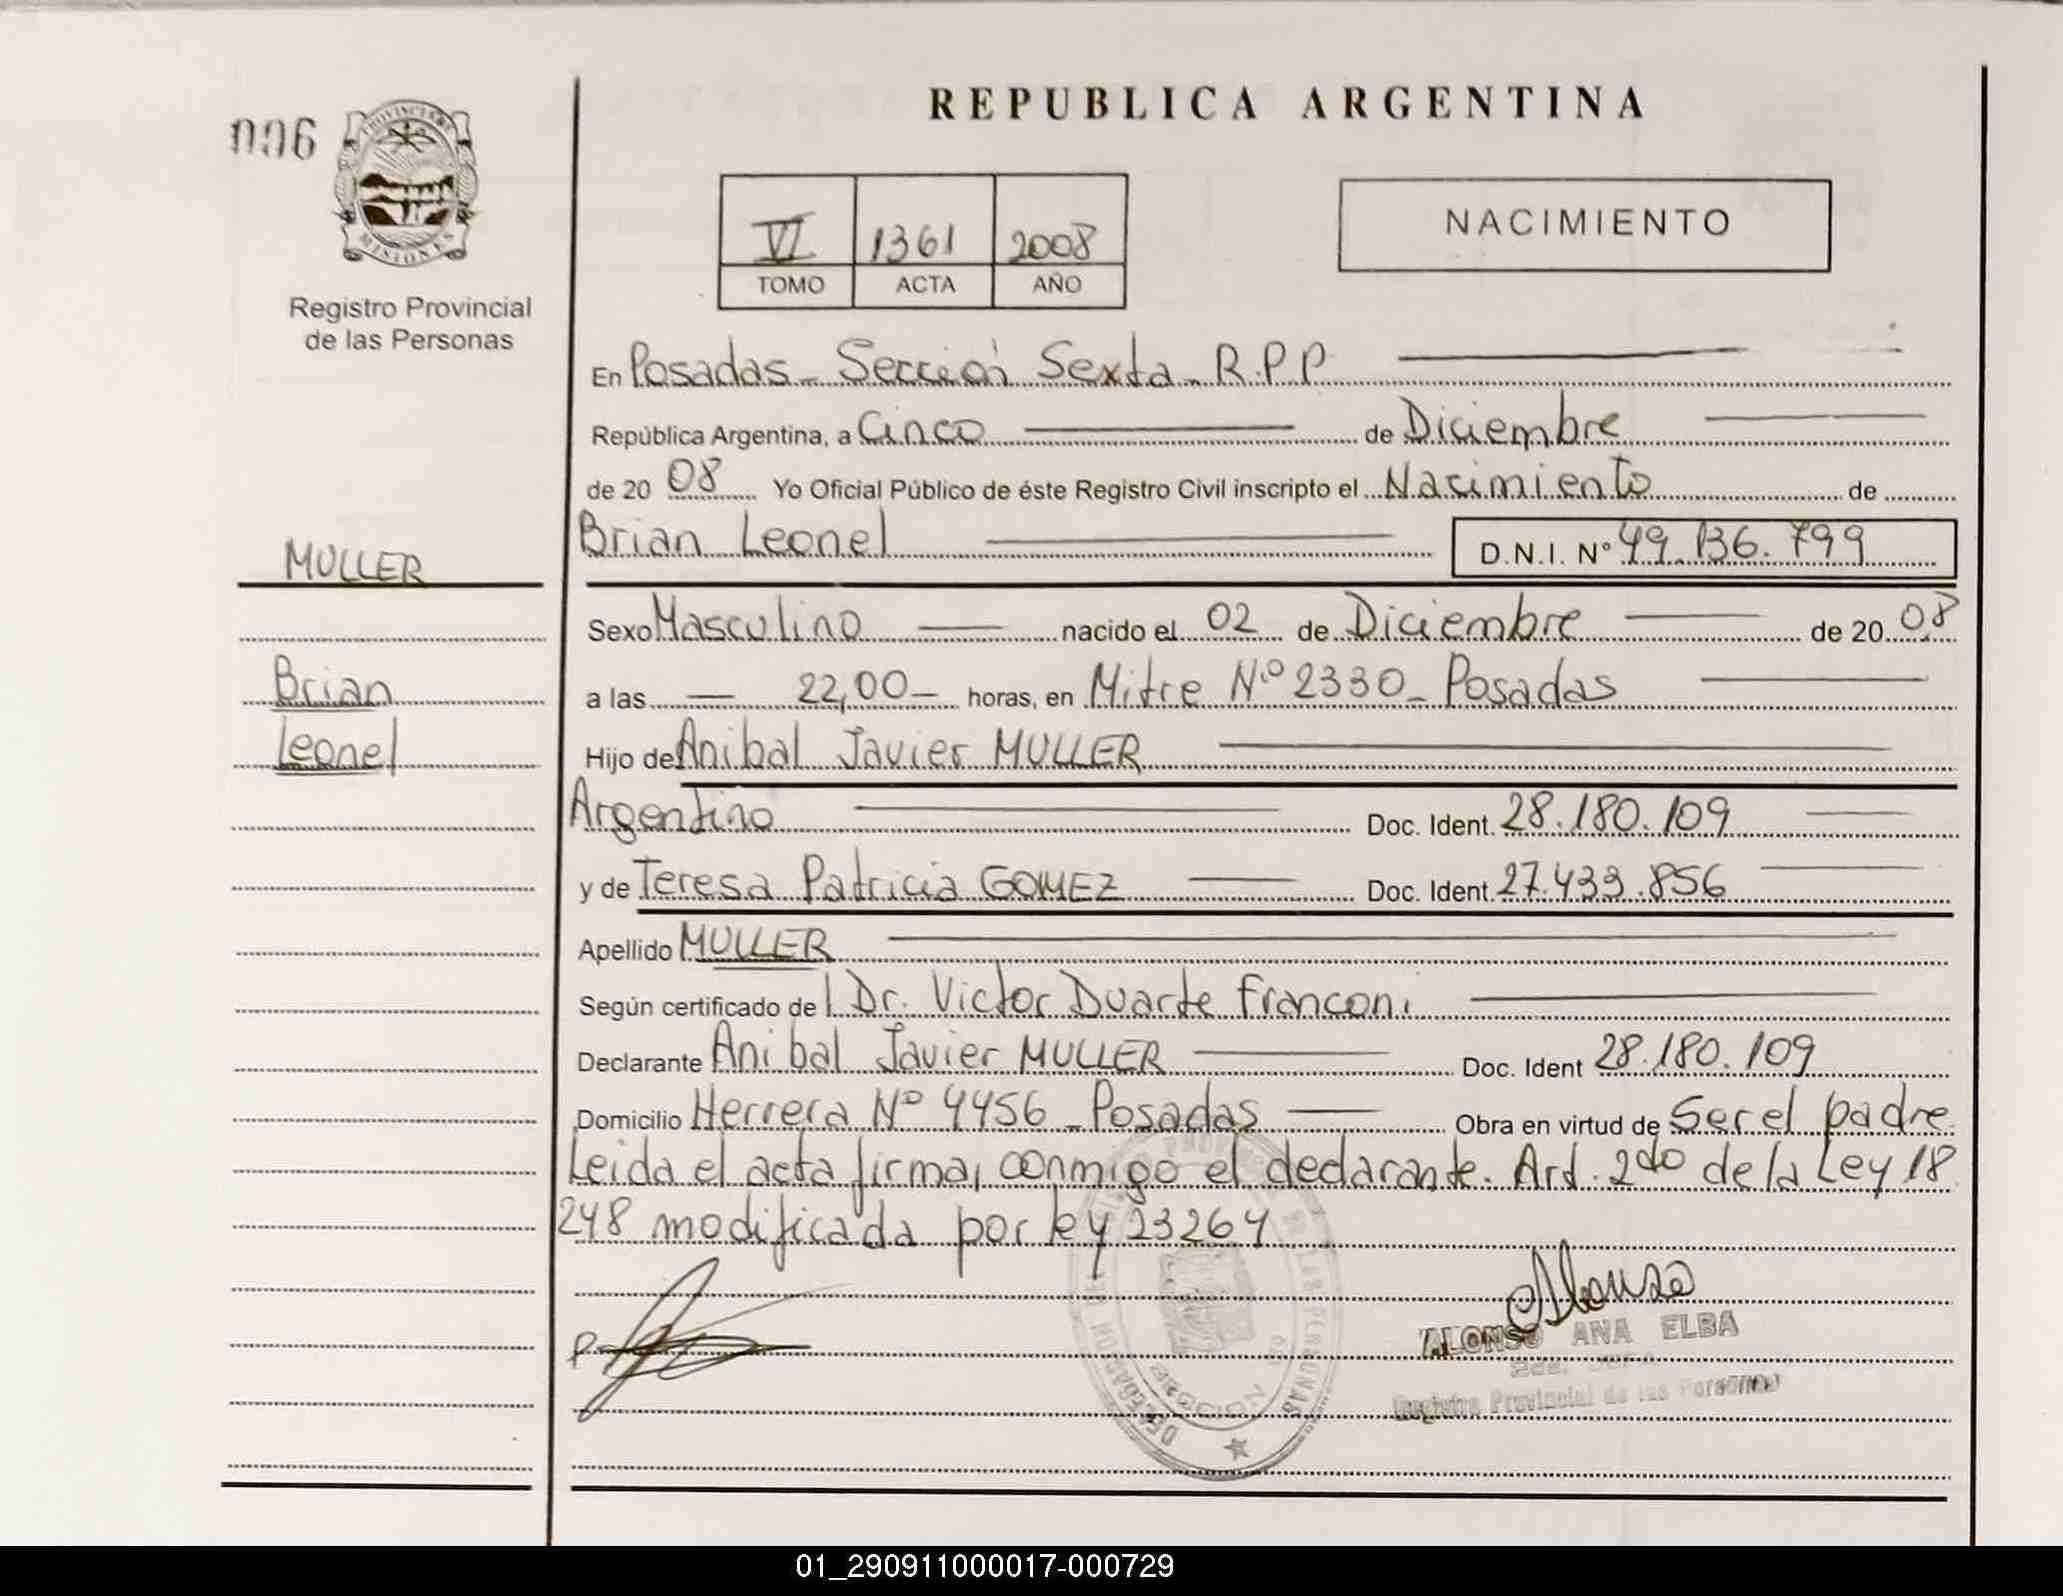 REPUBLICA ARGENTINA
006
PROVINCIA DE
MISIONES
Registro Provincial
de las Personas
VI 1361 2008
TOMO ACTA AÑO
NACIMIENTO
En Posadas - Sección Sexta - R.P.P.
República Argentina, a Cinco de Diciembre
de 20 08 Yo Oficial Público de éste Registro Civil inscripto el Nacimiento de
Brian Leonel D.N.I. Nº 49.136.799
MULLER
Brian
Leonel
Sexo Masculino nacido el 02 de Diciembre de 20 08
a las 22,00 - horas, en Mitre Nº 2330 - Posadas
Hijo de Anibal Javier MULLER
Argentino Doc. Ident. 28.180.109
y de Teresa Patricia GOMEZ Doc. Ident. 27.433.856
Apellido MULLER
Según certificado de l Dr. Victor Duarte Franconi
Declarante Anibal Javier MULLER Doc. Ident 28.180.109
Domicilio Herrera Nº 4456 - Posadas Obra en virtud de Ser el padre
Leida el acta firma, conmigo el declarante. Art. 2do de la Ley 18
248 modificada por ley 23264
ALONSO ANA ELBA
Registro Provincial de las Personas
DE LAS PERSONAS
SECCION
01_290911000017-000729